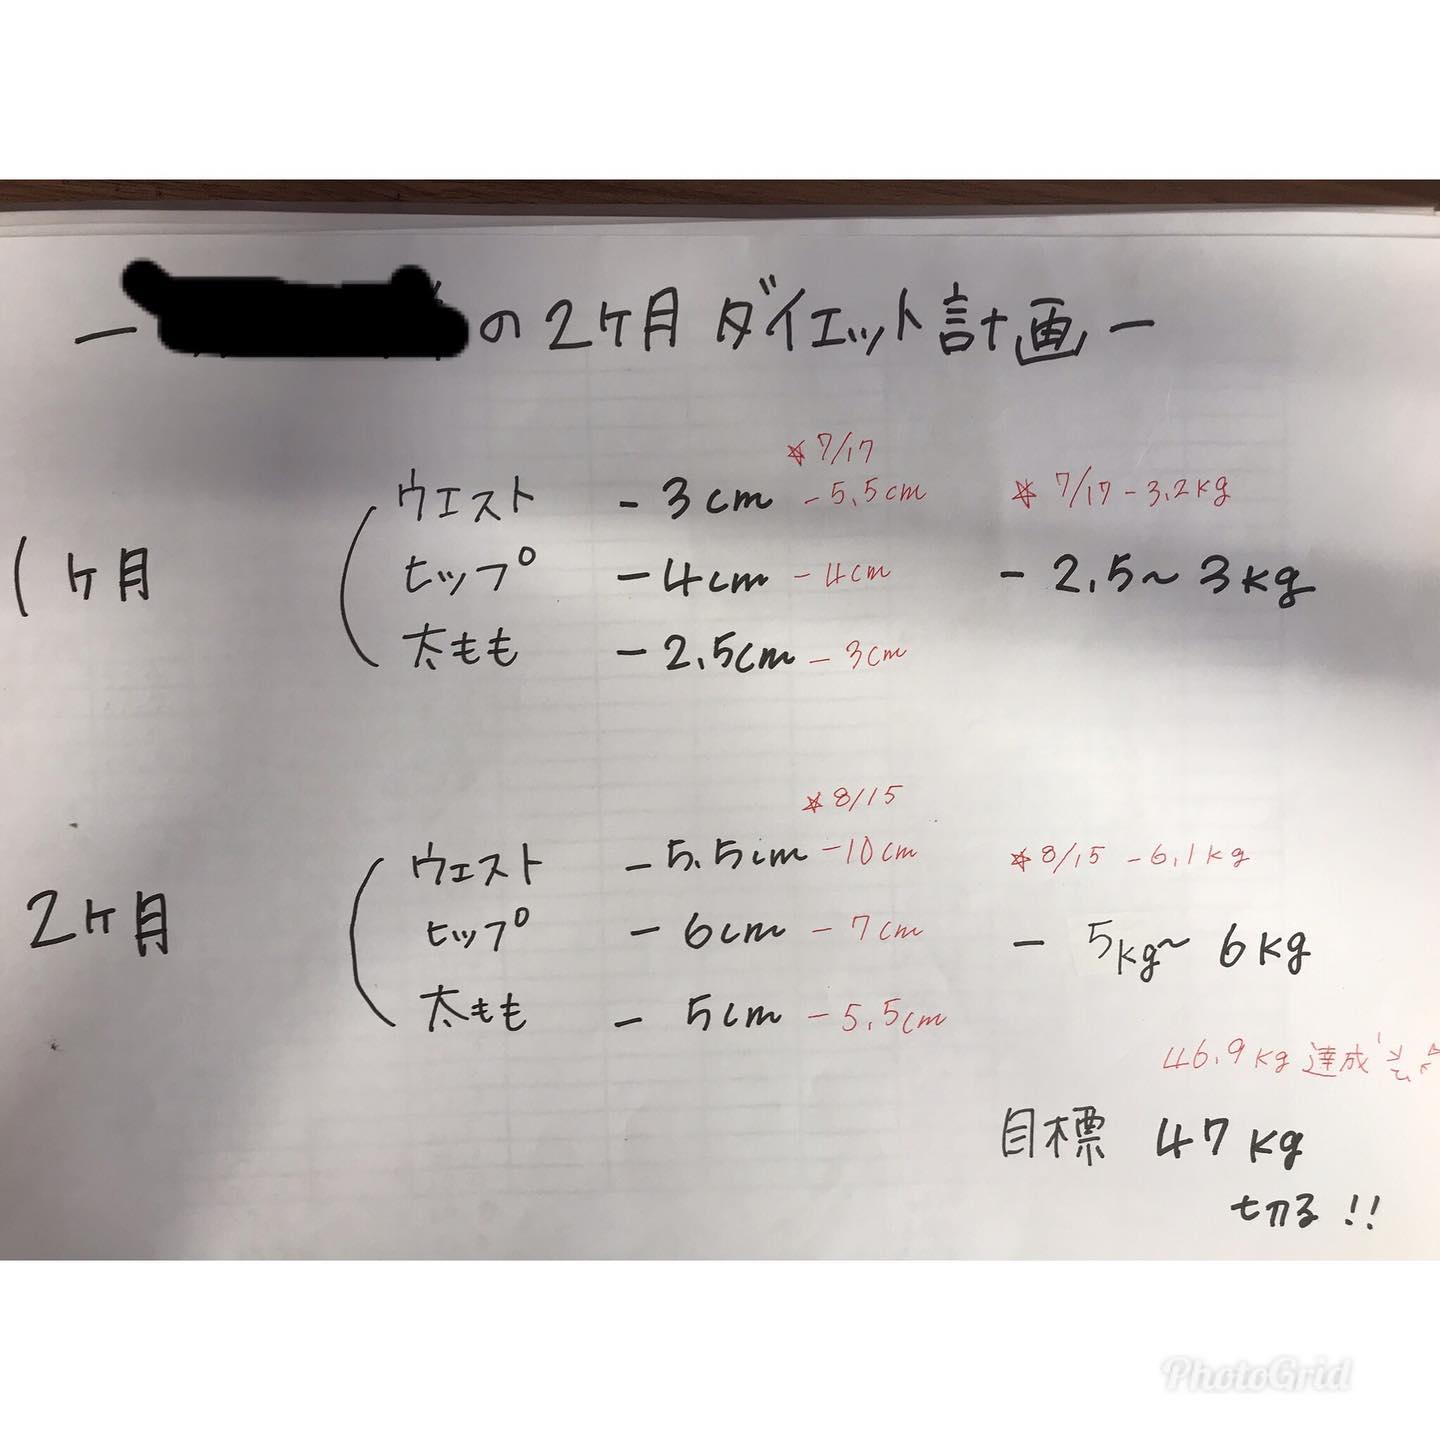 ー の2ヶ月 ダイエット計画ー
☆7/17
ウエスト -3cm -5.5cm ☆7/17 -3.2kg
1ヶ月 ヒップ -4cm -4cm -2.5~3kg
太もも -2.5cm -3cm
☆8/15
ウエスト -5.5cm -10cm ☆8/15 -6.1kg
2ヶ月 ヒップ -6cm -7cm -5kg~6kg
太もも -5cm -5.5cm
46.9kg 達成
目標 47kg
切る!!
PhotoGrid